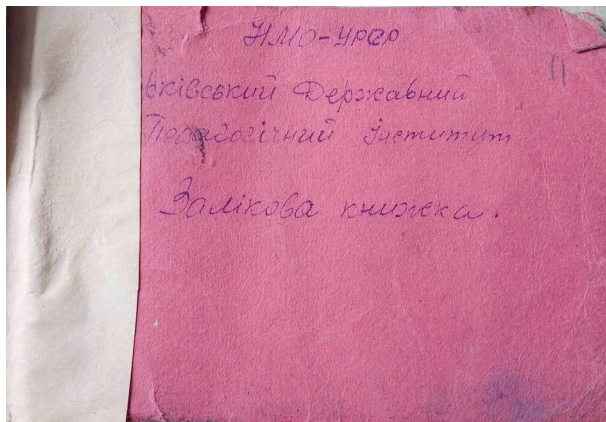 НМО-УРСР
рківський Державний
Педагогічний Інститут
Залікова книжка.